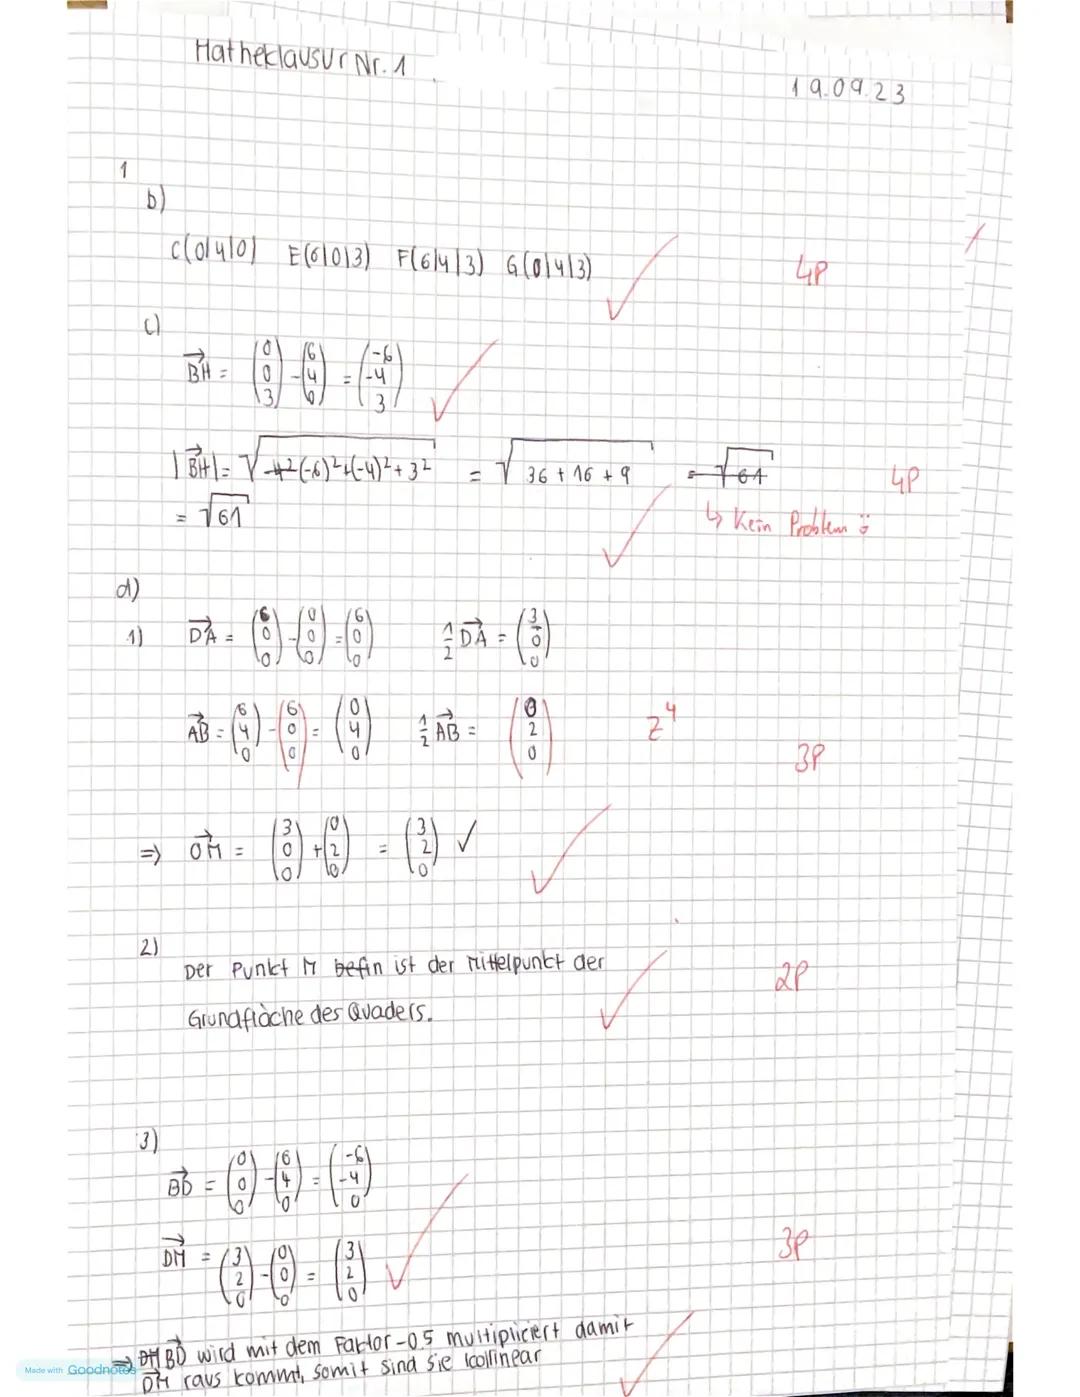 Matheklausur Nr. 1
19.09.23
1
b)
C(0|4|0) E(6|0|3) F(6|4|3) G(0|4|3)
4P
c)
BH→ = (0 0 3) - (6 4 0) = (-6 -4 3)
|BH→| = √(-6)²+(-4)²+3² = √36+16+9 = √61
4P
= √61
↳ Kein Problem
d)
1) DA→ = (6 0 0) - (0 0 0) = (6 0 0) 1/2 DA→ = (3 0 0)
AB→ = (6 4 0) - (6 0 0) = (0 4 0) 1/2 AB→ = (0 2 0)
3P
⇒ OM→ = (3 0 0) + (0 2 0) = (3 2 0) ✓
2)
Der Punkt M befin ist der Mittelpunkt der
2P
Grundfläche des Quaders.
3)
BD→ = (0 0 0) - (6 4 0) = (-6 -4 0)
DM→ = (3 2 0) - (0 0 0) = (3 2 0)
3P
⇒ DM BD→ wird mit dem Faktor -0.5 multipliciert damit
DM→ raus kommt, somit sind sie kollinear
Made with Goodnotes